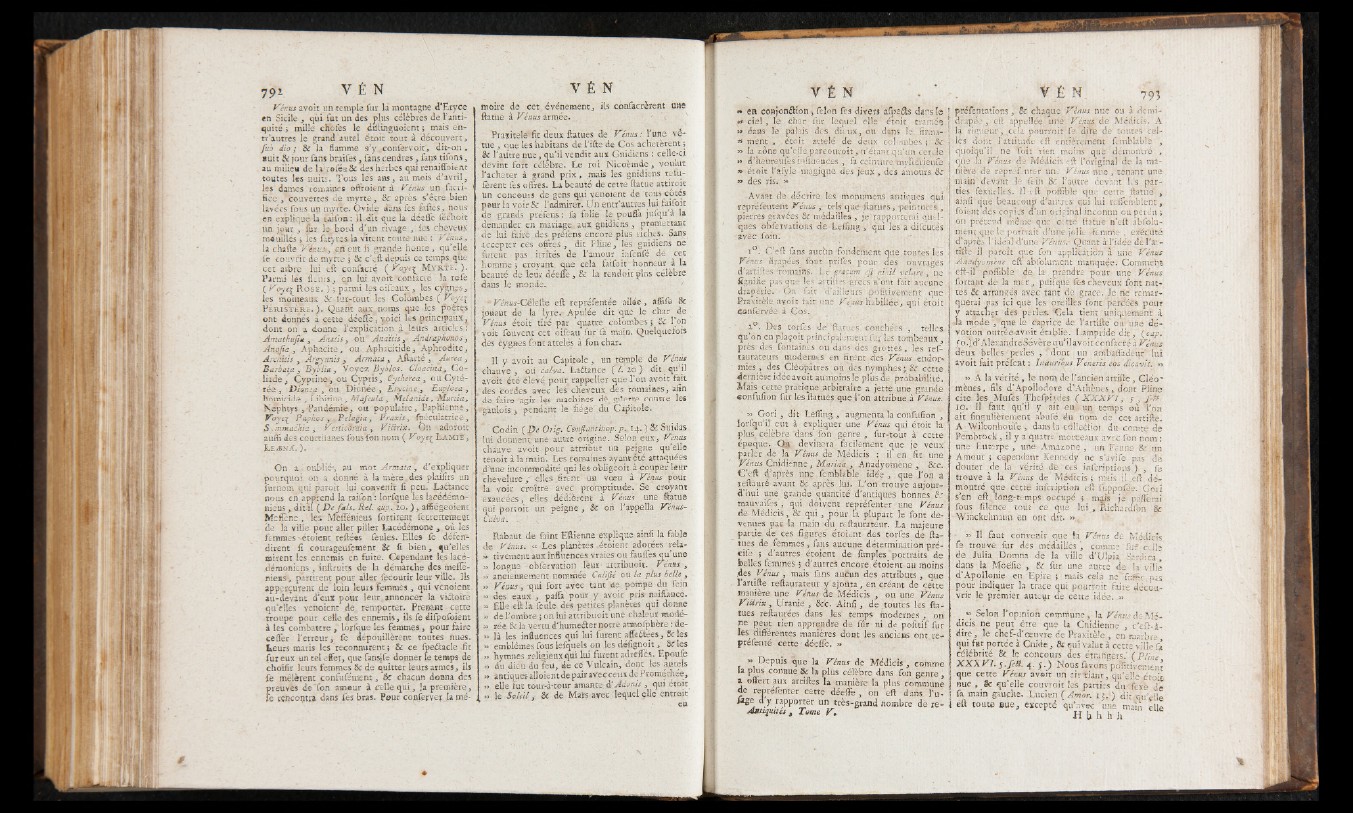 792 VÉN
Vénus avoit un temple sur la montagne d'Eryce
en Sicile, qui fut un des plus célèbres de l'anti-
quité; mille choses le distinguoient; mais en-
tr'autres le grand autel étoit tout à découvert,
sub dio; & la flamme s'y conservoit, dit-on,
nuit & jour sans braises, sans cendres, sans tisons,
au milieu de la rosée & des herbes qui renaissoient
toutes les nuits. Tous les ans, au mois d'avril,
les dames romaines offroient à Vénus un sacri-
fice, couvertes de myrte, & après s'être bien
lavées sous un myrte. Ovide dans ses fastes, nous
en explique la raison: il dit que la déesse séchoit
un jour, sur le bord d'un rivage, ses cheveux
mouillés; les satyres la virent toute nue: Vénus,
la chaste Vénus, en eut si grande honte, qu'elle
se couvrit de myrte; & c'est depuis ce temps que
cet arbre lui est consacré (Voyez MYRTE.).
Parmi les fleurs, on lui avoit consacré la rose
(Voyez ROSE.); parmi les oiseaux, les cygnes,
les moineaux & sur-tout les Colombes (Voyez
PERISTERE.). Quant aux noms que les poëtes
ont donnés à cette déesse, voici les principaux,
dont on a donné l'explication à leurs articles:
Amathusia, Anaïs, ou Anaitis, Androphonos,
Anosia, Aphacite, ou Aphacitide, Aphrodite,
Architis, Argynnis, Armata, Astarté, Aurea,
Barbata, Byblia, Voyez Byblos. Cloacina, Co-
liade, Cyprine, ou Cypris, Cytherea, ou Cyté-
rée, Dionea, ou Dionée, Erycina, Euplaea,
homicida, Libitina, Mascula, Melanide, Murcia,
Nephtys, Pandémie, ou populaire, Paphienne,
Voyez Paphos, Pelagia, Praxis, Spéculatrice,
Symmachia, Verticordia, Victrix. On adoroit
aussi des courtisanes sous son nom (Voyez LAMIE,
LEÆNA.).
On a oublié, au mot Armata, d'expliquer
pourquoi on a donné à la mère des plaisirs un
surnom qui paroît lui convenir si peu. Lactance
nous en apprend la raison: lorsque les lacédémo-
niens, dit-il (De fals. Rel. cap. 20.), assiégeoient
Messène, les Messéniens sortirent secrettement
de la ville pour aller piller Lacédémone, où les
femmes étoient restées seules. Elles se défen-
dirent si courageusement & si bien, qu'elles
mirent les ennemis en fuite. Cependant les lacé-
démoniens, instruits de la démarche des messé-
niens, partirent pour aller secourir leur ville. Ils
apperçurent de loin leurs femmes, qui venoient
au-devant d'eux pour leur annoncer la victoire
qu'elles venoient de remporter. Prenant cette
troupe pour celle des ennemis, ils se disposoient
à les combattre, lorsque les femmes, pour faire
cesser l'erreur, se dépouillèrent toutes nues.
Leurs maris les reconnurent; & ce spectacle fit
sur eux un tel effet, que sans se donner le temps de
choisir leurs femmes & de quitter leurs armes, ils
se mêlèrent confusément, & chacun donna des
preuves de son amour à celle qui, la première,
se rencontra dans ses bras. Pour conserver la mé-
VÉN
moire de cet événement, ils consacrèrent une
statue à Vénus armée.
Praxitèle fit deux statues de Vénus: l'une vê-
tue, que les habitans de l'isle de Cos achetèrent;
& l'autre nue, qu'il vendit aux Gnidiens: celle-ci
devint fort célèbre. Le roi Nicomède, voulut
l'acheter à grand prix, mais les gnidiens refu-
sèrent ses offres. La beauté de cette statue attiroit
un concours de gens qui venoient de tous côtés
pour la voir & l'admirer. Un entr'autres lui faisoit
de grands présens: sa folie le poussa jusqu'à la
demander en mariage aux gnidiens, promettant
de lui faire des présens encore plus riches. Sans
accepter ces offres, dit Pline, les gnidiens ne
furent pas irrités de l'amour insensé de cet
homme; croyant que cela faisoit honneur à la
beauté de leur déesse, & la rendoit plus célèbre
dans le monde.
Vénus-Céleste est représentée ailée, assise &
jouant de la lyre. Apulée dit que le char de
Vénus étoit tiré par quatre colombes; & l'on
voit souvent cet oiseau sur sa main. Quelquefois
des cygnes sont attelés à son char.
Il y avoit au Capitole, un temple de Vénus
chauve, ou calva. Lactance (l. 20) dit qu'il
avoit été élevé pour rappeller que l'on avoit fait
des cordes avec les cheveux des romaines, afin
de faire agir les machines de guerre contre les
gaulois, pendant le siège du Capitole.
Codin (De Orig. Constantinop. p. 14.) & Suidas
lui donnent une autre origine. Selon eux, Vénus
chauve avoit pour attribut un peigne qu'elle
tenoit à la main. Les romaines ayant été attaquées
d'une incommodité qui les obligeoit à couper leur
chevelure, elles firent un vœu à Vénus pour
la voir croître avec promptitude. Se croyant
exaucées, elles dédièrent à Vénus une statue
qui portoit un peigne, & on l'appella Vénus-
Calva.
Rabaut de saint Estienne explique ainsi la fable
de Vénus. « Les planètes étoient adorées rela-
» tivement aux influences vraies ou fausses qu'une
» longue observation leur attribuoit. Vénus,
» anciennement nommée Calisté ou la plus belle,
» Vénus, qui sort avec tant de pompe du sein
» des eaux, passa pour y avoir pris naissance.
» Elle est la seule des petites planètes qui donne
» de l'ombre; on lui attribuoit une chaleur modé-
» rée & la vertu d'humecter notre atmosphère: de-
» là les influences qui lui furent affectées, & les
» emblèmes sous lesquels on les désignoit, & les
» hymnes religieux qui lui furent adressés. Epouse
» du dieu du feu, de ce Vulcain, dont les autels
» antiques alloient de pair avec ceux de Prométhée,
» elle fut tour-à-tour amante d'Adonis, qui étoit
» le Soleil, & de Mars avec lequel elle entroit
eu
VÉN
» en conjonction, selon ses divers aspects dans le
» ciel, le char sur lequel elle étoit traînée
» dans le palais des dieux, ou dans le firma-
» ment, étoit attelé de deux colombes; &
» la zône qu'elle parcouroit, n'étant qu'un cercle
» d'heureuses influences, sa ceinture mystérieuse
» étoit l'asyle magique des jeux, des amours &
» des ris. »
Avant de décrire les monumens antiques qui
représentent Vénus, tels que statues, peintures,
pierres gravées & médailles, je rapporterai quel-
ques observations de Lessing, qui les a discutés
avec soin.
1°. C'est sans aucun fondement que toutes les
Vénus drapées sont prises pour des ouvrages
d'artistes romains. Le græcum est nihil velare, ne
signifie pas que les artistes grecs n'ont fait aucune
draperie. On sait d'ailleurs positivement que
Praxitèle avoit fait une Vénus habillée, qui étoit
conservée à Cos.
2°. Des torses de statues couchées, telles
qu'on en plaçoit principalement sur les tombeaux,
près des fontaines ou dans des grottes, les res-
taurateurs modernes en firent des Vénus endor-
mies, des Cléopâtres ou des nymphes; & cette
dernière idée avoit au moins le plus de probabilité.
Mais cette pratique arbitraire a jetté une grande
confusion sur les statues que l'on attribue à Vénus.
» Gori, dit Lessing, augmenta la confusion,
lorsqu'il eut à expliquer une Vénus qui étoit la
plus célèbre dans son genre, sur-tout à cette
époque. On devinera facilement que je veux
parler de la Vénus de Médicis: il en fit une
Vénus Cnidienne, Marina, Anadyomene, &c.
C'est d'après une semblable idée, que l'on a
restauré avant & après lui. L'on trouve aujour-
d'hui une grande quantité d'antiques bonnes &
mauvaises, qui doivent représenter une Vénus
de Médicis, & qui, pour la plupart le sont de-
venues par la main du restaurateur. La majeure
partie de ces figures étoient des torses de sta-
tues de femmes, sans aucune détermination pré-
cise; d'autres étoient de simples portraits de
belles femmes; d'autres encore étoient au moins
des Vénus, mais sans aucun des attributs, que
l'artiste restaurateur y ajouta, en créant de cette
manière une Vénus de Médicis, ou une Vénus
Victrix, Uranie, &c. Ainsi, de toutes les sta-
tues restaurées dans les temps modernes, on
ne peut rien apprendre de sûr ni de positif sur
les différentes manières dont les anciens ont re-
présenté cette déesse. »
» Depuis que la Vénus de Médicis, comme
la plus connue & la plus célèbre dans son genre,
a offert aux artistes la manière la plus commune
de représenter cette déesse, on est dans l'u-
sage d'y rapporter un très-grand nombre de re-
Antiquités, Tome V.
VÉN 793
présentations, & chaque Vénus nue ou à demi-
drapée, est appellée une Vénus de Médicis. A
la rigueur, cela pourroit se dire de toutes cel-
les dont l'attitude est entièrement semblable,
quoiqu'il ne soit rien moins que démontré,
que la Vénus de Médicis est l'original de la ma-
nière de représenter une Vénus nue, tenant une
main devant le sein & l'autre devant les par-
ties sexuelles. Il est possible que cette statue,
ainsi que beaucoup d'autres qui lui ressemblent,
soient des copies d'un original inconnu ou perdu;
on prétend même que cette statue n'est absolu-
ment que le portrait d'une jolie femme, exécuté
d'après l'idéal d'une Vénus. Quant à l'idée de l'ar-
tiste il paroît que son application à une Vénus
Anadyomene est absolument manquée. Comment
est-il possible de la prendre pour une Vénus
sortant de la mer, puisque ses cheveux sont nat-
tés & arrangés avec tant de grace. Je ne remar-
querai pas ici que les oreilles sont percées pour
y attacher des perles. Cela tient uniquement à
la mode, que le caprice de l'artiste ou une dé-
votion outrée avoit établie. Lampride dit, (cap.
50.) d'Alexandre Sévère qu'il avoit consacré à Vénus
deux belles perles, dont un ambassadeur lui
avoit fait présent: Inauribus Veneris eos dicavit. »
» A la vérité, le nom de l'ancien artiste, Cléo-
mènes, fils d'Apollodore d'Athènes, dont Pline
cite les Muses Thespiades (XXXVI, 5, sect.
10. Il faut qu'il y ait eu un temps où l'on
ait singulièrement abusé du nom de cet artiste.
A Wiltonhouse, dans la collection du comte de
Pembrock, il y a quatre morceaux avec son nom:
une Euterpe, une Amazone, un Faune & un
Amour; cependant Kennedy ne s'avise pas de
douter de la vérité de ces inscriptions), se
trouve à la Vénus de Médicis; mais il est dé-
montré que cette inscription est supposée. Gori
s'en est long-temps occupé; mais je passerai
sous silence tout ce que lui, Richardson &
Winckelmann en ont dit. »
» Il faut convenir que la Vénus de Médicis
se trouve sur des médailles, comme sur celle
de Julia Domna de la ville d'Ulpia Serdica,
dans la Moësie, & sur une autre de la ville
d'Apollonie en Epire; mais cela ne suffit pas
pour indiquer la trace qui pourroit faire décou-
vrir le premier auteur de cette idée. »
« Selon l'opinion commune, la Vénus de Mé-
dicis ne peut être que la Cnidienne, c'est-à-
dire, le chef-d'œuvre de Praxitèle, en marbre,
qui fut portée à Cnide, & qui valut à cette ville sa
célébrité & le concours des étrangers. (Pline,
XXXVI. 5. sect. 4. 5.) Nous savons positivement
que cette Vénus avoit un air riant, qu'elle étoit
nue, & qu'elle couvroit les parties du sexe de
sa main gauche. Lucien (Amor. 13.) dit qu'elle
est toute nue, excepté qu'avec une main elle
H h h h h